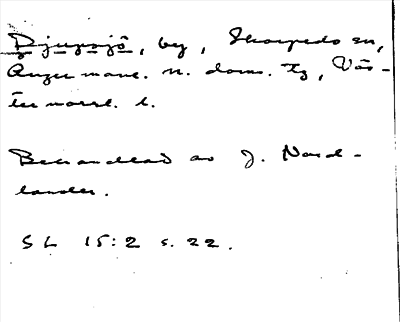 Djupsjö, by, Skorpeds sn,
Ångermanl. n. doms. tg, Väs-
ternorrl. l.
Behandlad av J. Nord-
lander.
SL 15:2 s. 22.